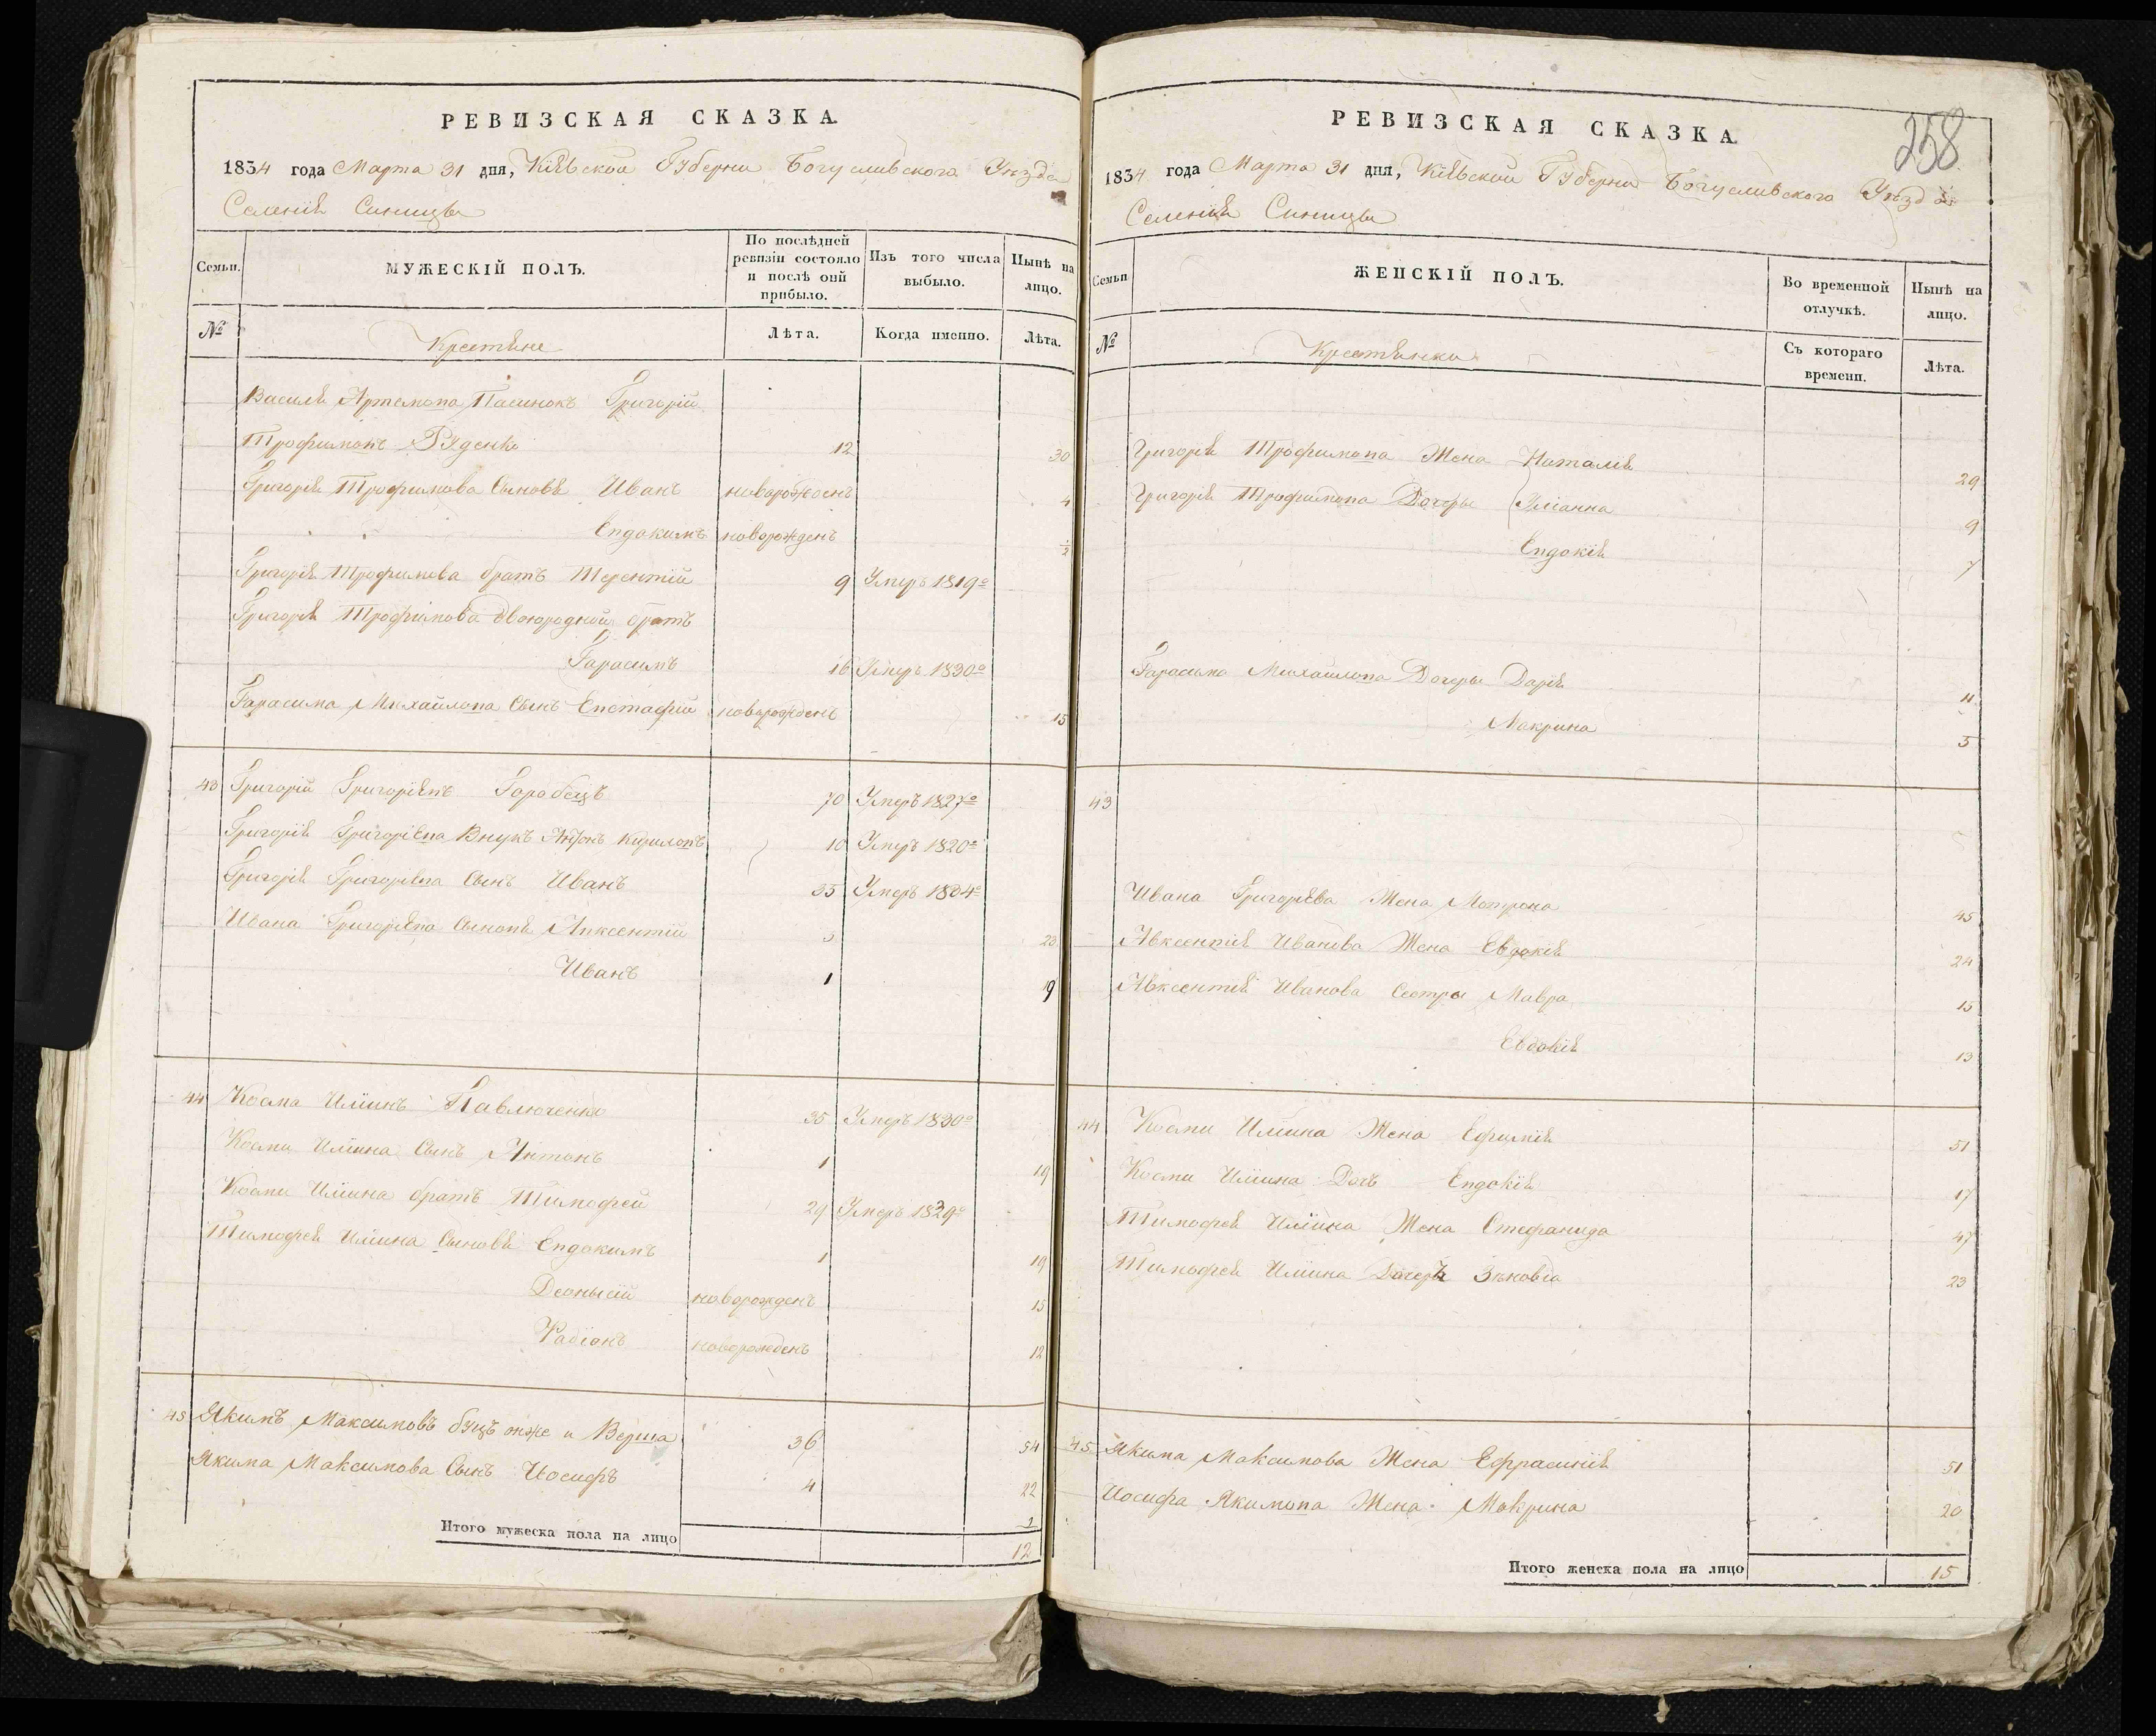 РЕВИЗСКАЯ СКАЗКА.
1834 года Марта 31 дня, Кіевской Губерни Богуславского Уѣзда
Селенія Синицы
Семьи. МУЖЕСКІЙ ПОЛЪ. По послѣдней ревизіи состояло и послѣ оной прибыло. Изъ того числа выбыло. Нынѣ на лицо.
№ Крестяне Лѣта. Когда именно. Лѣта.
Василя Артемова Пасинокъ Григорій
Трофимовъ Руденко 12 30
Григорія Трофимова Сыновя Иванъ новорожденъ 4
Евдокимъ новорожденъ ½
Григорія Трофимова братъ Терентій 9 Умеръ 1819º
Григорія Трофимова двоюродной братъ
Гарасимъ 16 Умеръ 1830º
Гарасима Михайлова Сынъ Евстафій новорожденъ 15
43 Григорій Григоріевъ Горобецъ 70 Умеръ 1827º
Григорія Григоріева Внукъ Антонъ Кириловъ 10 Умеръ 1820º
Григорія Григоріева Сынъ Иванъ 35 Умеръ 1834º
Ивана Григоріева Сыновя Авксентій 5 23
Иванъ 1 19
44 Косма Иліинъ Павлюченко 35 Умеръ 1830º
Косми Иліина Сынъ Антонъ 1 19
Косми Иліина братъ Тимофей 29 Умеръ 1829º
Тимофея Иліина Сыновя Евдокимъ 1 19
Деонысій новорожденъ 15
Радіонъ новорожденъ 12
45 Якимъ Максимовъ буцъ онже и Верша 36 54
Якима Максимова Сынъ Иосифъ 4 22
Итого мужеска пола на лицо 12
258
РЕВИЗСКАЯ СКАЗКА.
1834 года Марта 31 дня, Кіевской Губерни Богуславского Уѣзда
Селенія Синицы
Семьи. ЖЕНСКІЙ ПОЛЪ. Во временной отлучкѣ. Нынѣ на лицо.
№ Крестянки Съ котораго времени. Лѣта.
Григорія Трофимова Жена Наталія 29
Григорія Трофимова Дочеры Уліанна 9
Евдокія 7
Гарасима Михайлова Дочеры Дарія 11
Макрина 5
43
Ивана Григоріева Жена Мотрона 45
Авксентія Иванова Жена Евдокія 24
Авксентія Иванова Сестры Мавра 15
Евдокія 13
44 Косми Иліина Жена Ефимія 51
Косми Иліина Дочъ Евдокія 17
Тимофея Иліина Жена Стефанида 47
Тимофея Иліина Дочеръ Зѣновіа 23
45 Якима Максимова Жена Ефрасинія 51
Иосифа Якимова Жена Макрина 20
Итого женска пола на лицо 15